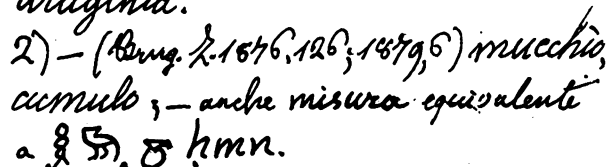 2) — (Brug. Z. 1876, 126; 1879, 6) mucchio,
cumulo; — anche misura equivalente
a ḥmn.